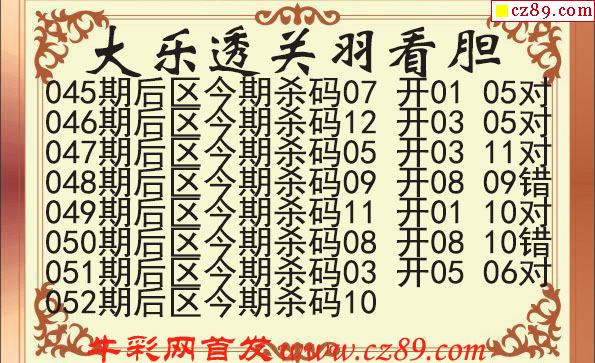 cz89.com
大乐透关羽看胆
045期后区今期杀码07 开01 05对
046期后区今期杀码12 开03 05对
047期后区今期杀码05 开03 11对
048期后区今期杀码09 开08 09错
049期后区今期杀码11 开01 10对
050期后区今期杀码08 开08 10错
051期后区今期杀码03 开05 06对
052期后区今期杀码10
牛彩网首发www.cz89.com